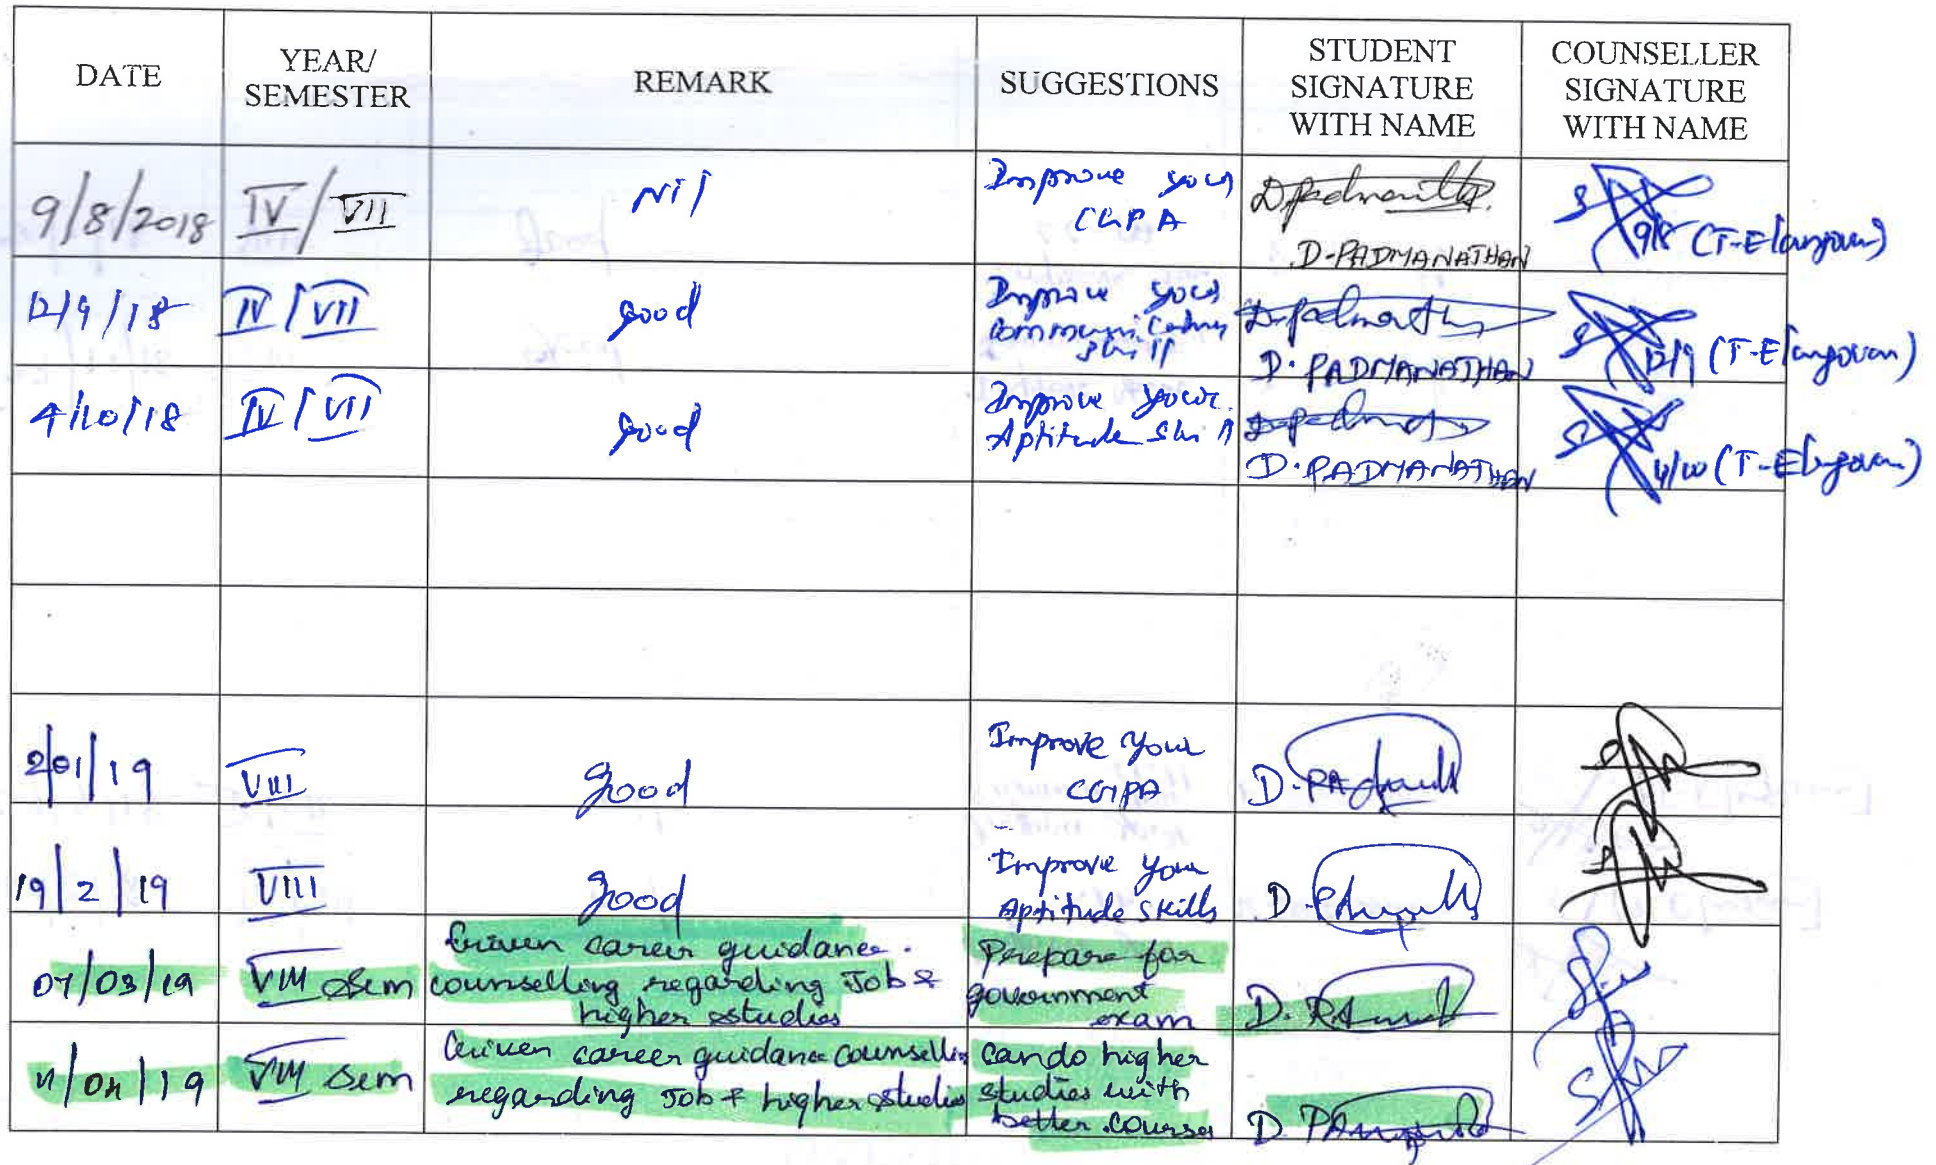 DATE
YEAR/
SEMESTER
REMARK
SUGGESTIONS
STUDENT
SIGNATURE
WITH NAME
COUNSELLER
SIGNATURE
WITH NAME
9/8/2018
IV/VII
Nil
Improve your
CGPA
D-PADMANATHAN
9/8 (T-Elangovan)
12/9/18
IV/VII
good
Improve your
skill
D. PADMANATHAN
12/9 (T-Elangovan)
4/10/18
IV/VII
good
Improve your
Aptitude skill
D. PADMANATHAN
4/10 (T-Elangovan)
VIII
good
Improve your
CGPA
19/2/19
VIII
good
Improve your
Aptitude skills
07/03/19
VIII Sem
Given career guidance.
counselling regarding Job &
higher studies
Prepare for
government
exam
VIII Sem
Given career guidance counselling
regarding Job & higher studies
can do higher
studies with
better course